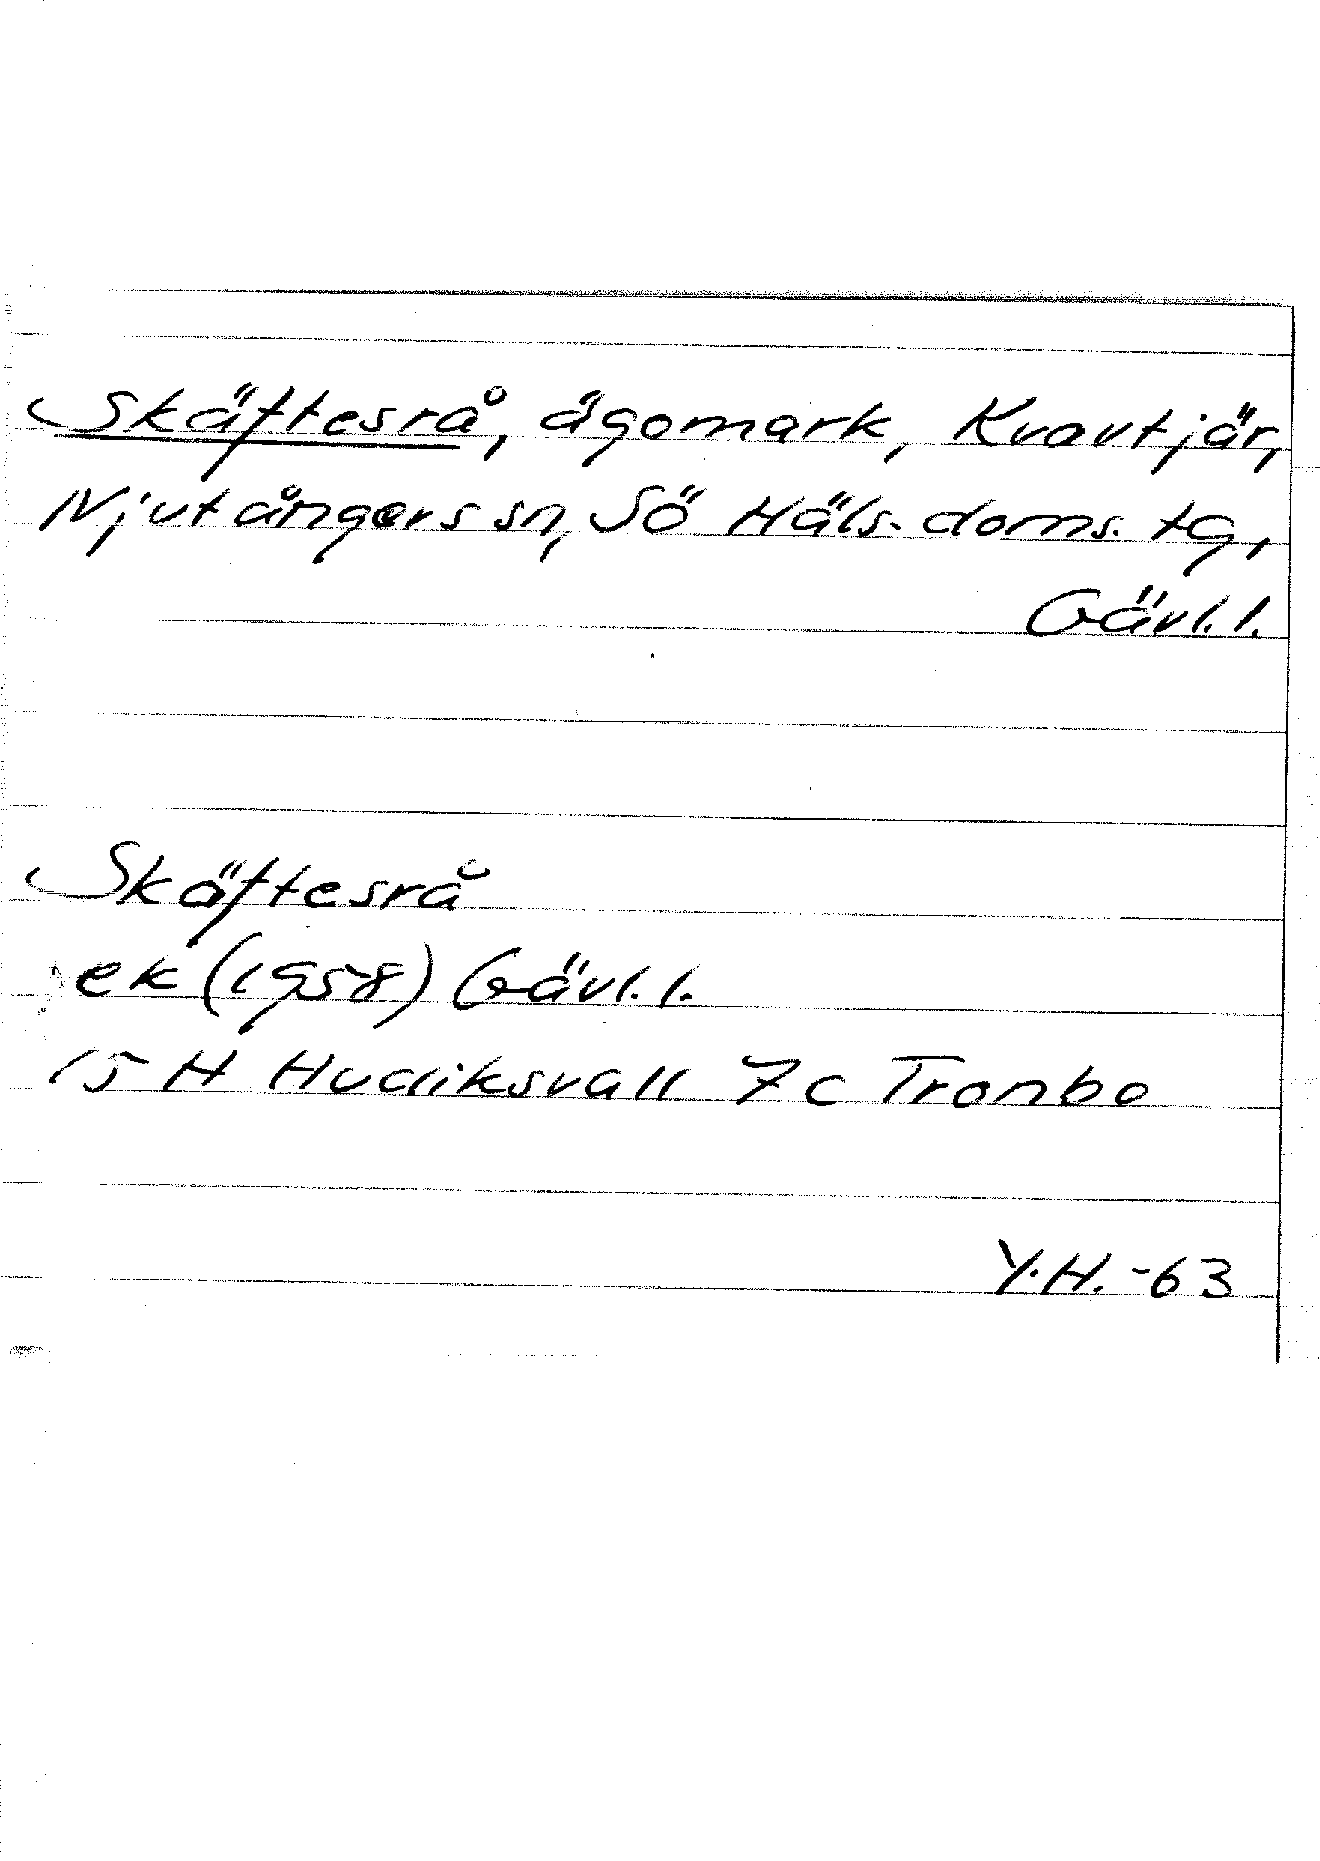 Skäftesrå, ägomark, Kvavtjär,
Njutångers sn, Sö Häls. doms. tg,
Gävl. l.
Skäftesrå
ek (1958) Gävl. l.
15 H Hudiksvall 7c Tronbo
Y.H. -63